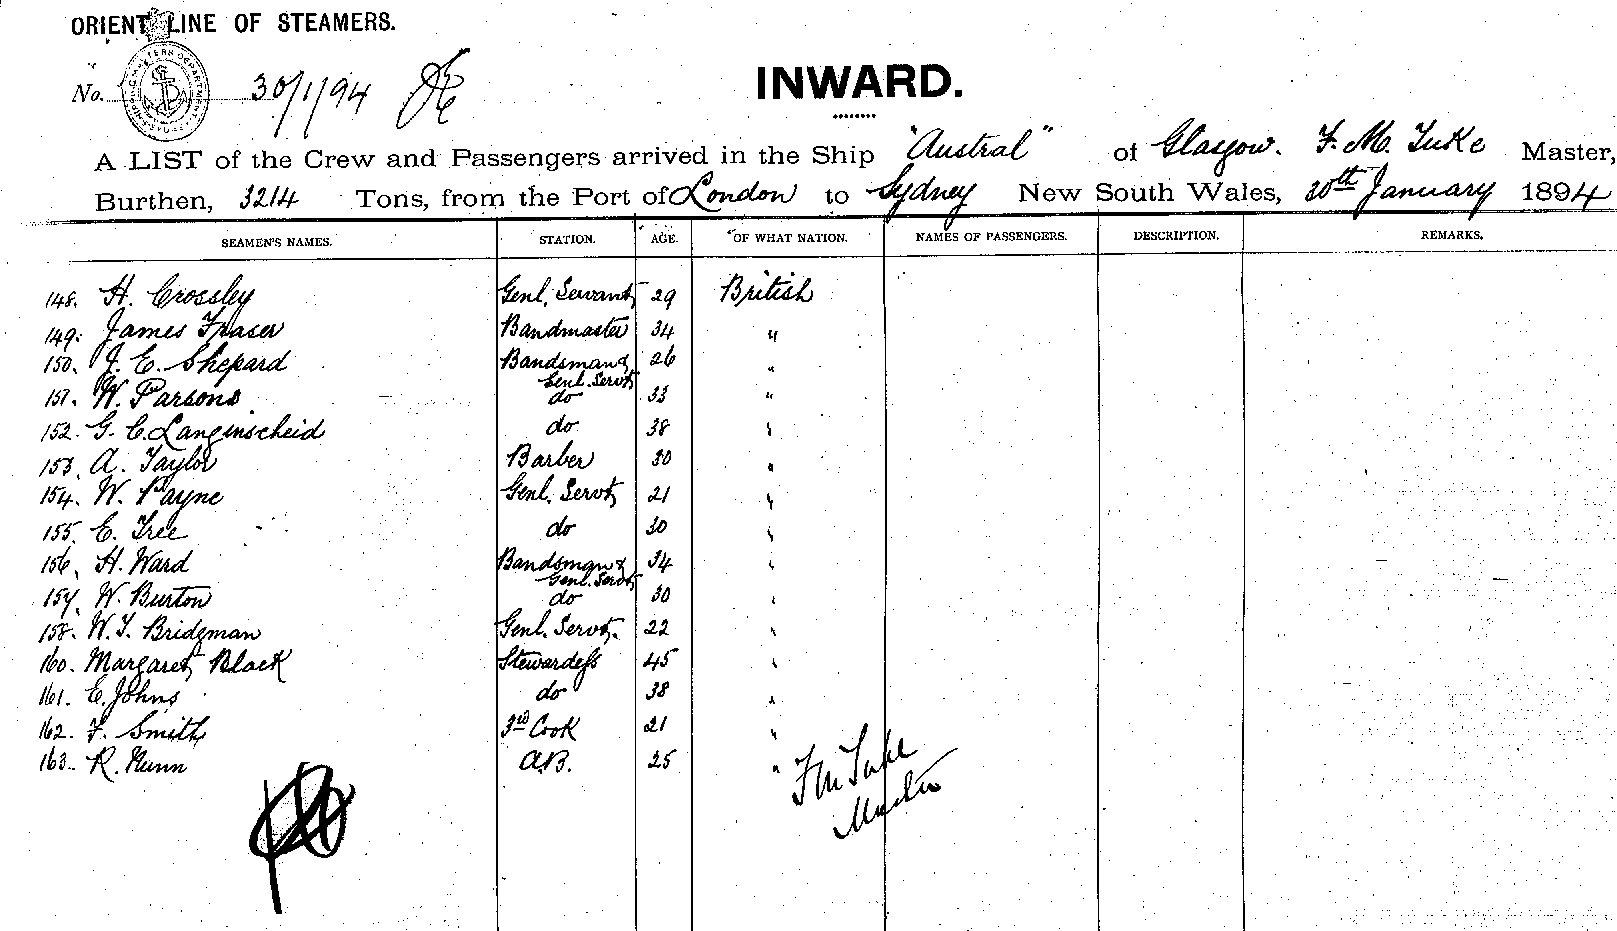 ORIENT LINE OF STEAMERS.
No. 30/1/94
INWARD.
A LIST of the Crew and Passengers arrived in the Ship "Austral" of Glasgow. F. M. Tuke Master,
Burthen, 3214 Tons, from the Port of London to Sydney New South Wales, 30th January 1894
SEAMEN'S NAMES. STATION. AGE. OF WHAT NATION. NAMES OF PASSENGERS. DESCRIPTION. REMARKS.
148. H. Crossley Genl. Servant 29 British
149. James Fraser Bandmaster 34 "
150. J. E. Shepard Bandsman & Genl. Servt 26 "
151. W. Parsons do 33 "
152. G. C. Langinscheid do 38 "
153. A. Taylor Barber 30 "
154. W. Payne Genl. Servt 21 "
155. E. Tree do 30 "
156. H. Ward Bandsman & Genl. Servt 34 "
157. W. Burton do 30 "
158. W. T. Bridgman Genl. Servt. 22 "
160. Margaret Black Stewardess 45 "
161. E. Johns do 38 "
162. F. Smith 3rd Cook 21 "
163. R. Nunn A.B. 25 "
F M Tuke
Master